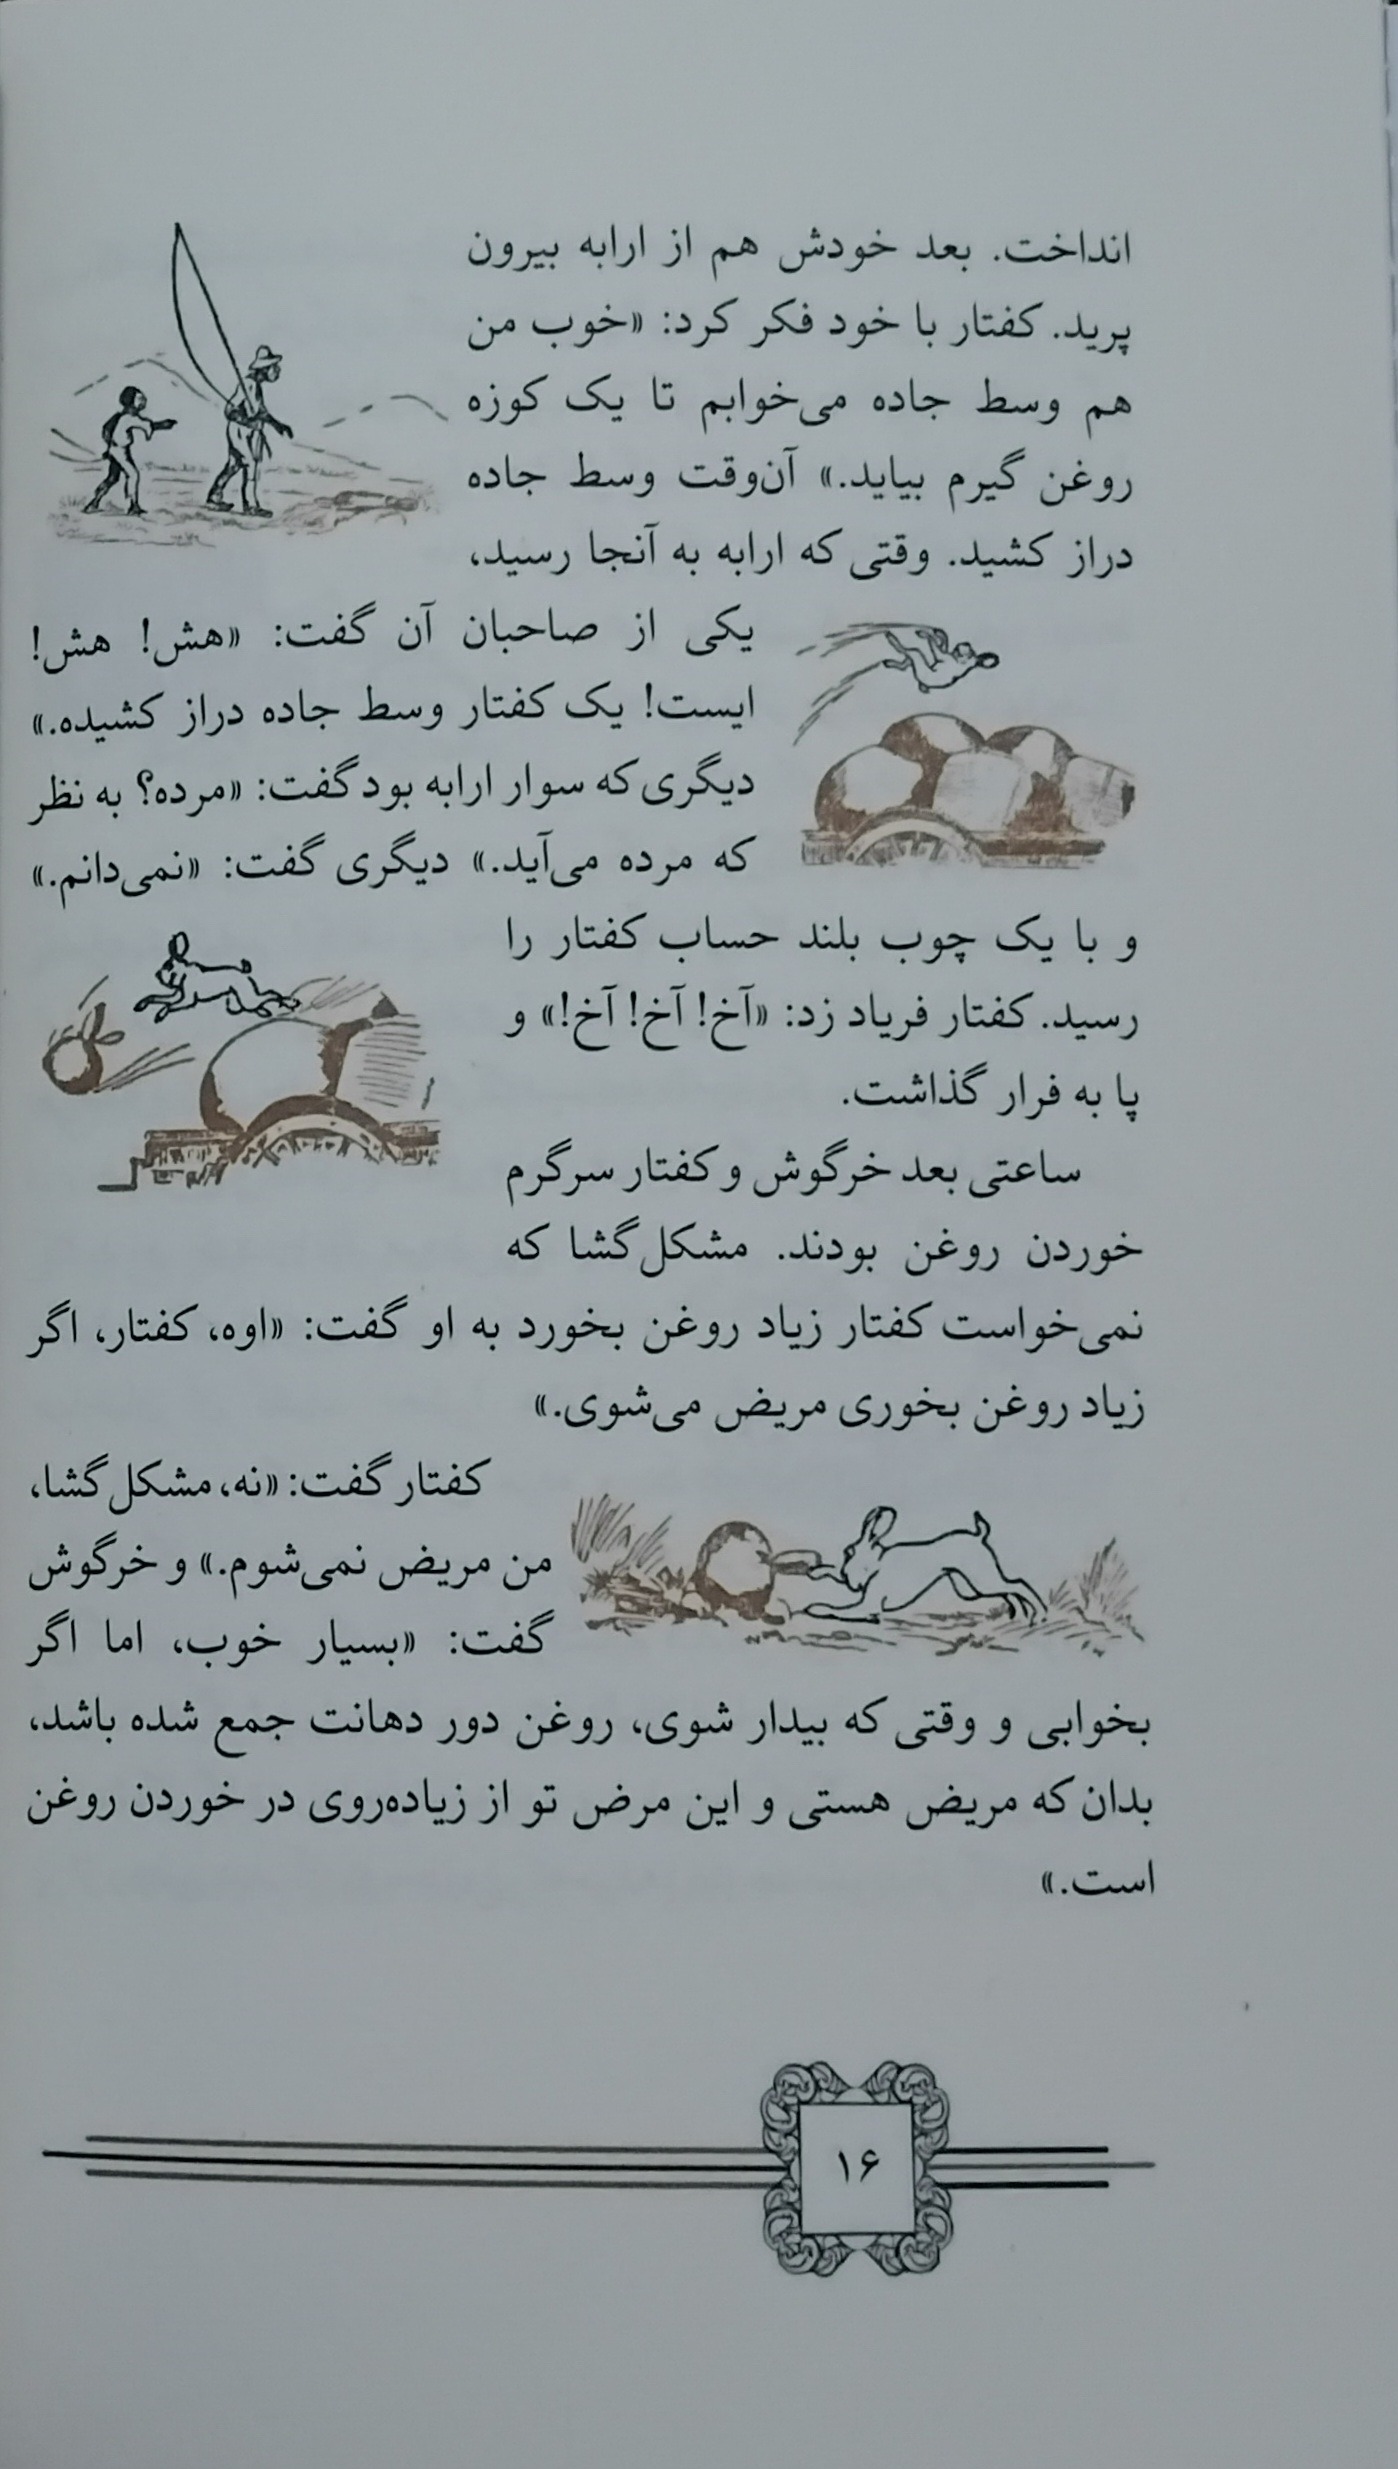 انداخت. بعد خودش هم از ارابه بیرون
پرید. کفتار با خود فکر کرد: «خوب من
هم وسط جاده می‌خوابم تا یک کوزه
روغن گیرم بیاید.» آن‌وقت وسط جاده
دراز کشید. وقتی که ارابه به آنجا رسید،
یکی از صاحبان آن گفت: «هش! هش!
ایست! یک کفتار وسط جاده دراز کشیده.»
دیگری که سوار ارابه بود گفت: «مرده؟ به نظر
که مرده می‌آید.» دیگری گفت: «نمی‌دانم.»
و با یک چوب بلند حساب کفتار را
رسید. کفتار فریاد زد: «آخ! آخ! آخ!» و
پا به فرار گذاشت.
ساعتی بعد خرگوش و کفتار سرگرم
خوردن روغن بودند. مشکل‌گشا که
نمی‌خواست کفتار زیاد روغن بخورد به او گفت: «اوه، کفتار، اگر
زیاد روغن بخوری مریض می‌شوی.»
کفتار گفت: «نه، مشکل‌گشا،
من مریض نمی‌شوم.» و خرگوش
گفت: «بسیار خوب، اما اگر
بخوابی و وقتی که بیدار شوی، روغن دور دهانت جمع شده باشد،
بدان که مریض هستی و این مرض تو از زیاده‌روی در خوردن روغن
است.»
۱۶